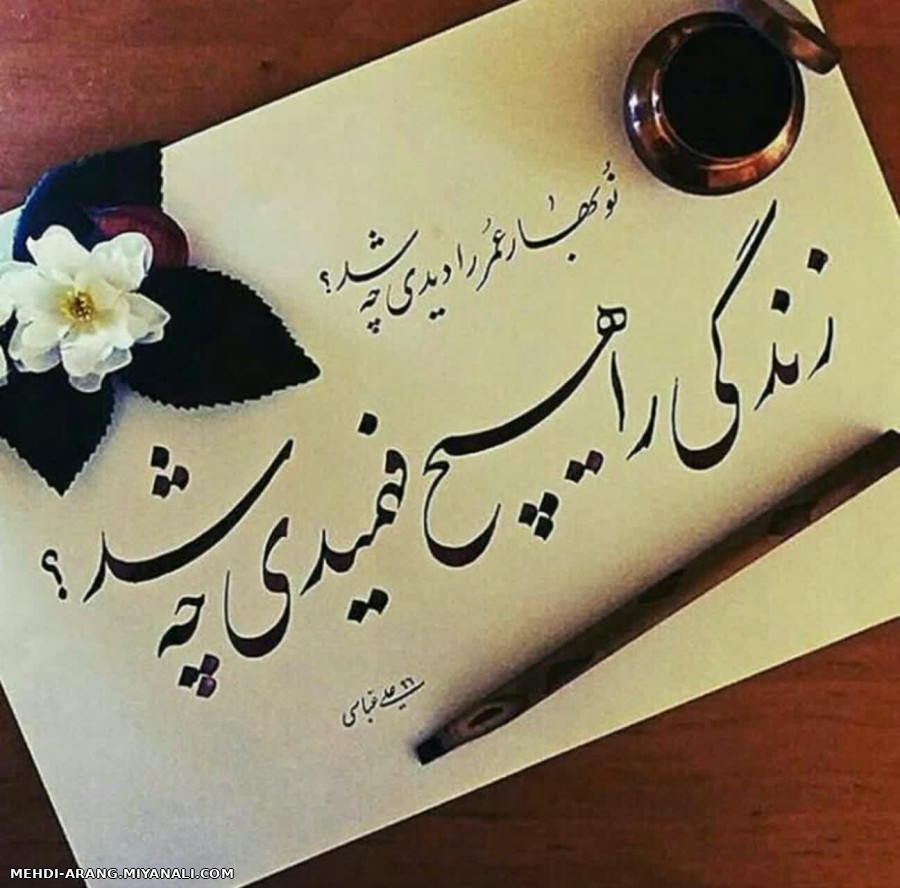 نوبهار عمر را دیدی چه شد؟
زندگی را هیچ فهمیدی چه شد؟
علی عباسی ۹۶
MEHDI-ARANG.MIYANALI.COM